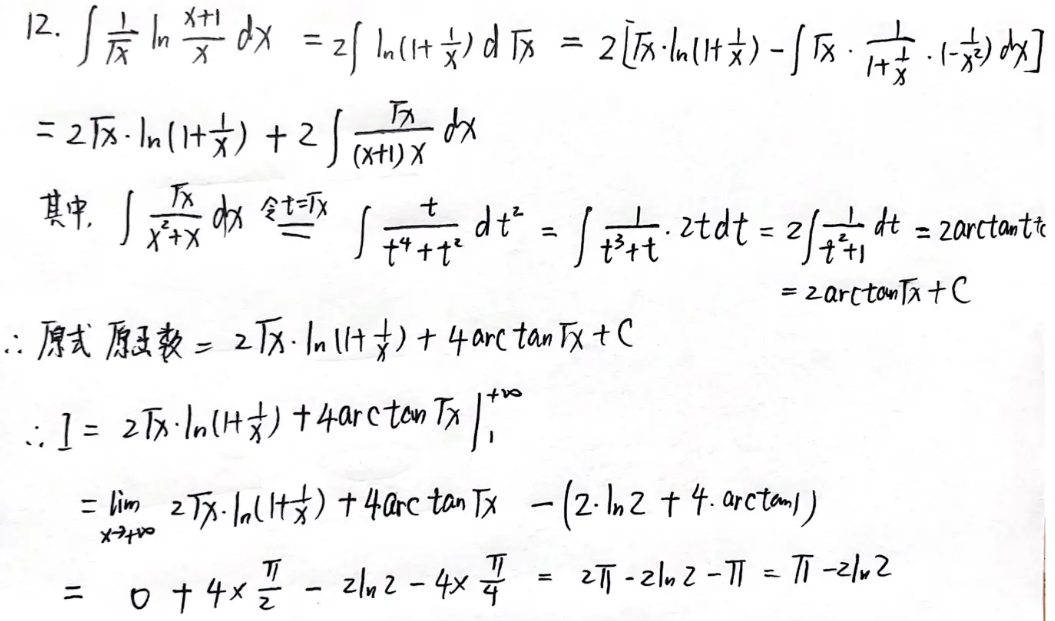 12. ∫ 1/√x ln (x+1)/x dx = 2∫ ln(1+1/x) d√x = 2[√x·ln(1+1/x) - ∫ √x · 1/(1+1/x) · (-1/x²) dx]
= 2√x·ln(1+1/x) + 2∫ √x/((x+1)x) dx
其中, ∫ √x/(x²+x) dx 令t=√x = ∫ t/(t⁴+t²) dt² = ∫ 1/(t³+t) · 2t dt = 2∫ 1/(t²+1) dt = 2arctan t+c
= 2arctan√x + C
∴ 原式 原函数 = 2√x·ln(1+1/x) + 4arctan√x + C
∴ I = 2√x·ln(1+1/x) + 4arctan√x |₁^{+∞}
= lim x→+∞ 2√x·ln(1+1/x) + 4arctan√x - (2·ln2 + 4·arctan1)
= 0 + 4×π/2 - 2ln2 - 4×π/4 = 2π - 2ln2 - π = π - 2ln2